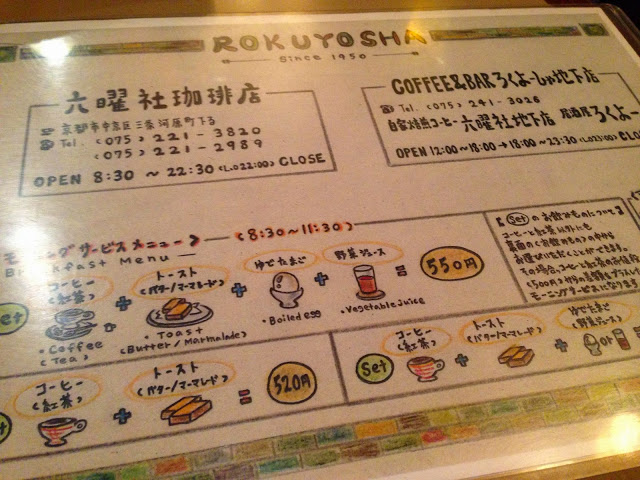 ROKUYOSHA
Since 1950
六曜社珈琲店
京都市中京区三条河原町下る
Tel. (075) 221-3820
(075) 221-2989
OPEN 8:30 ～ 22:30 (L.O 22:00) CLOSE
COFFEE&BAR ろくよーしゃ地下店
Tel. (075) 241-3026
自家焙煎コーヒー 六曜社地下店
OPEN 12:00～18:00→18:00～23:30
モーニングサービスメニュー (8:30～11:30)
Breakfast Menu
コーヒー
(紅茶)
・Coffee
(Tea)
+
トースト
(バター/マーマレード)
・Toast
(Butter/Marmalade)
+
ゆでたまご
・Boiled egg
+
野菜ジュース
・Vegetable juice
=
550円
Setのお飲みものについて
コーヒーと紅茶以外にも
コーヒー
(紅茶)
+
トースト
(バター/マーマレード)
=
520円
Set
コーヒー
(紅茶)
+
トースト
(バター/マーマレード)
+
ゆでたまご
(野菜ジュース)
or